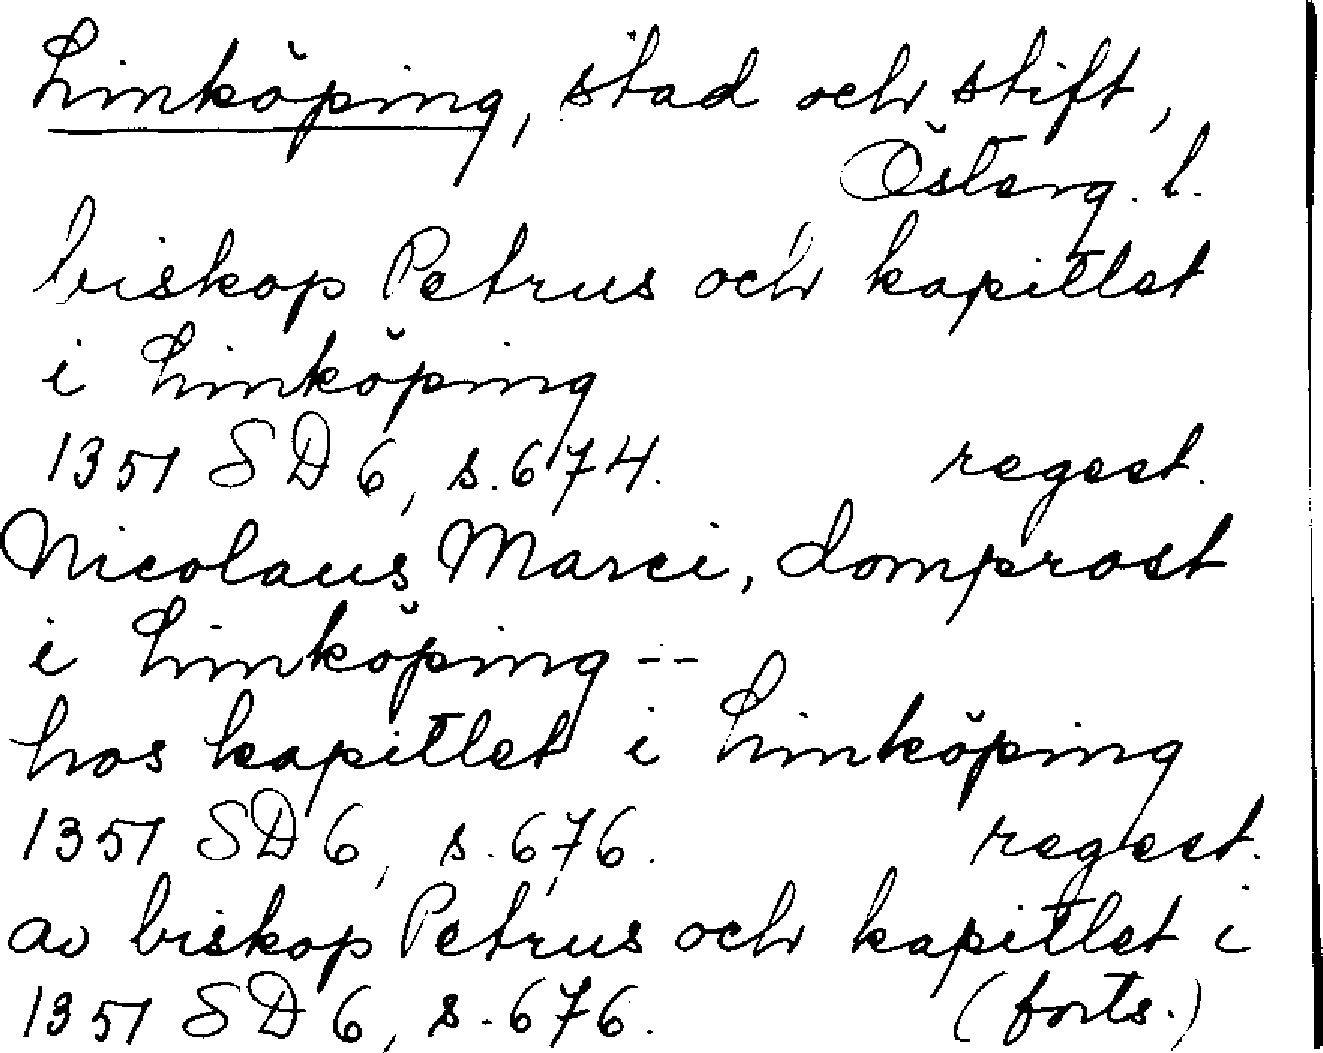 Linköping, stad och stift,
Österg. l.
biskop Petrus och kapitlet
i Linköping
1351 SD 6, s. 674. regest.
Nicolaus Marci, domprost
i Linköping --
hos kapitlet i Linköping
1351 SD 6, s. 676. regest.
av biskop Petrus och kapitlet i
1351 SD 6, s. 676. (forts.)